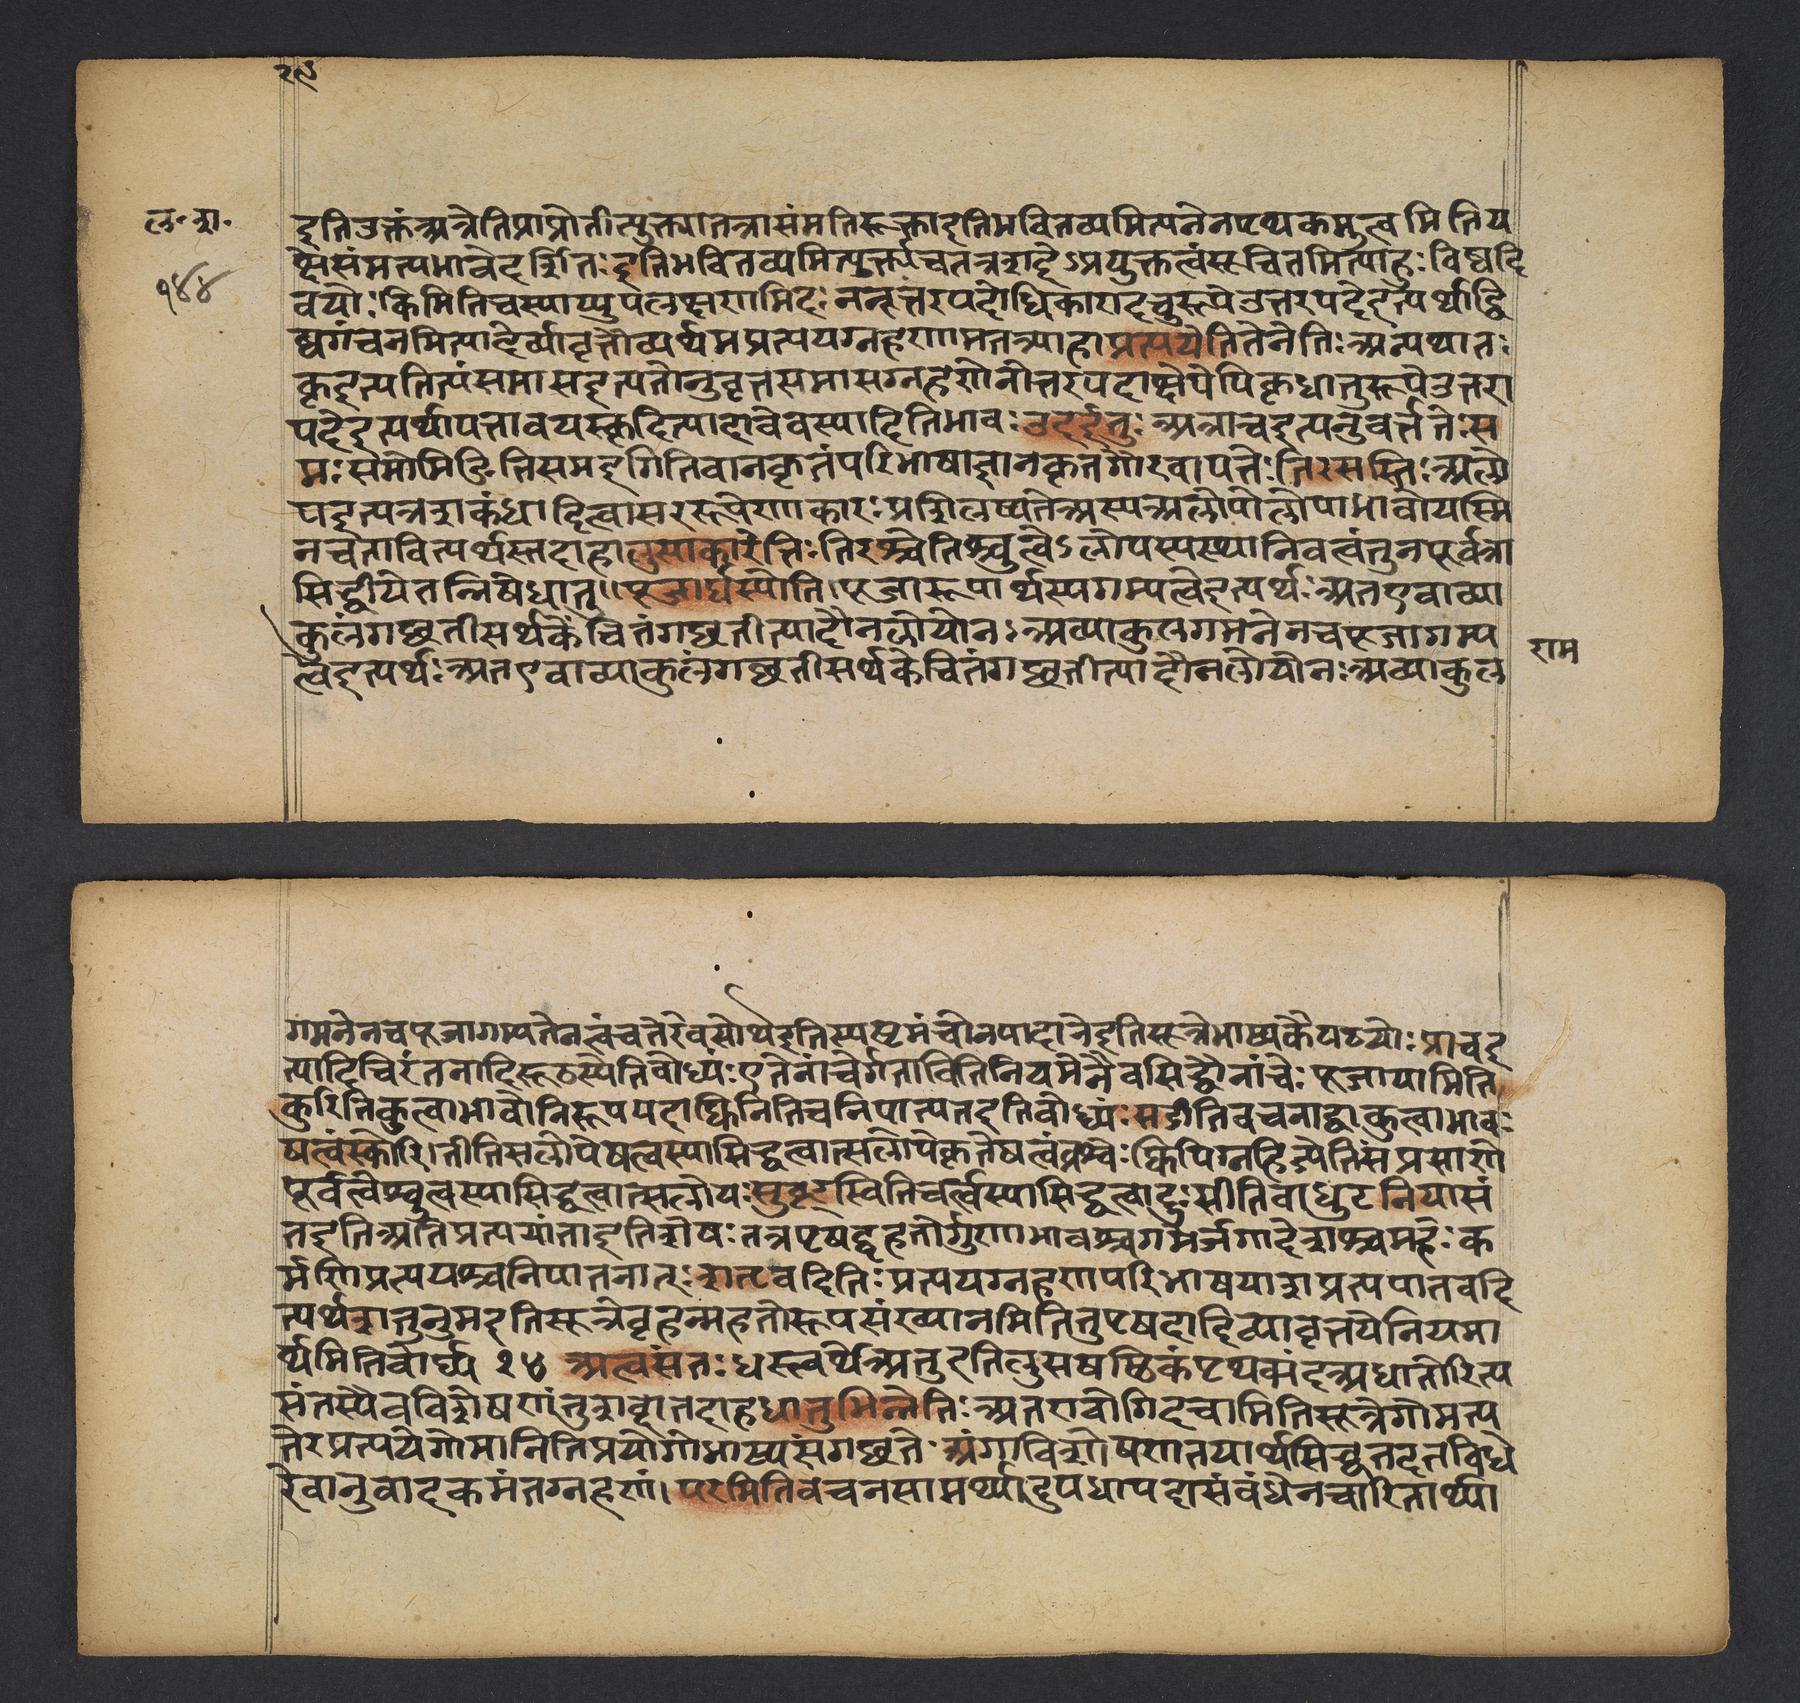 २९
ल॰ शा॰
१४४
इति उक्तं अत्रेति प्राप्नोतीत्युक्त्या तत्रासंमतिरुक्ता इति भवितव्यमित्यनेन पृथक्कमुत्वमिति य
सिसंमत्यभावे दर्शितः इति भवितव्यमित्युक्त्या च तत्र शब्दे ऽप्रयुक्तत्वं सूचितमित्याहुः विष्वद्दे
वयोः किमिति चस्याप्युपलक्षणमिदं ननूत्तरपदाधिकारादचुरूपे उत्तरपदे इत्यर्थाद्वि
ष्वगंचनमित्यादेर्व्यावृत्तौ व्यर्थमप्रत्ययग्रहणमत आहाप्रत्ययेति तेनेतिः अन्यथातः
कृइत्यतित्यंसमास इत्यतोनुवृत्तसमासग्रहणेनोत्तरपदाक्षेपेपि कृधातुरूपे उत्तरा
पदे इत्यर्थापत्तावयस्कृदित्यादावेव स्यादिति भावः उद ईतुः अत्राच इत्यनुवर्त्तते समः
मः समोमिङिति समइगिति वा न कृतं परिभाषाज्ञानकृतगौरवापत्तेः तिरसस्ति अलो
प इत्यत्र शकंधादित्वात्सररूपेणाकारः प्रश्लिष्यते अस्य अलोपो लोपाभावो यस्मि
न्नचेताबित्यर्थस्तदाहालुप्ताकारेतिः तिरश्चेति श्चुत्वे ऽलोपस्य स्थानिवत्वं तु न पूर्वत्रा
सिद्धीये तन्निषेधात् ।। पूजार्घस्येति । पूजारूपार्थस्य गम्यत्वे इत्यर्थः अत एवाव्या
कुलं गछतीसर्थकेंचितं गछतीत्यादौ नलोपो नः अव्याकुलगमने न च पूजागम्य
त्वे इत्यर्थः अत एवाव्याकुलं गछतीसर्थकेचितं गछतीत्यादौ नलोपो नः अव्याकुल
राम
गमने न च पूजागम्यतेनत्वंचतेरेवसोर्थ इति स्पष्टमंचोनपादाने इति सूत्रे भाष्यकैयटयोः प्राच इ
त्यादि चिरंतनादिरूठस्येति बोध्यं एतेनांचेर्गताविति नियमेनैव सिद्धौ नांचेः पूजायामिति
कुरिति कुत्वाभावो निरूपपदात्क्विनिति च निपात्यत इति बोध्यं सङीति वचनाद्वा कुत्वाभावः
षत्वंस्कोरि।तीति सलोपे षत्वस्यासिद्धत्वात्सलोपे कृते षत्वं व्रश्चेः क्विपि ग्रहिज्येति संप्रसारणे
पूर्वत्वे श्चुत्वस्यासिद्धत्वात्सलोपः सुवृट्स्विति चर्त्वस्यासिद्धत्वाड्डः सीति वा धुट् नियासं
त इति अति प्रत्ययांता इति शेषः तत्र पृषद्बृहतोर्गुणाभावश्च गमेर्जगादेशश्चमहेः क
र्मणि प्रत्ययश्च निपातनात् शतृवदितिः प्रत्ययग्रहणपरिभाषया शप्रत्ययांतवदि
त्यर्थ शतुर्नुम इति सूत्रे बृहन्महतोरूपसंख्यानमिति तु पृषदादिव्यावृत्तये नियमा
र्थमिति बोध्य २४ अत्वसंतः धस्त्वर्थे अतु इति लुप्तषष्ठिकं पृथक्पदं अधातोरित्य
संतस्यैव विशेषणं तु शब्दो तदाह धातुभिन्नेतिः अत एवोगिदचामिति सूत्रे गोमत्य
तेरप्रत्यये गोमानिति प्रयोगो भाष्य संगछते अंगाविशेषणतयार्थसिद्धतदंतविधे
रेवानुवादकमंतग्रहणं । परमिति वचनसामर्थ्यादुपधापदसंबंधेन चारितार्थ्या